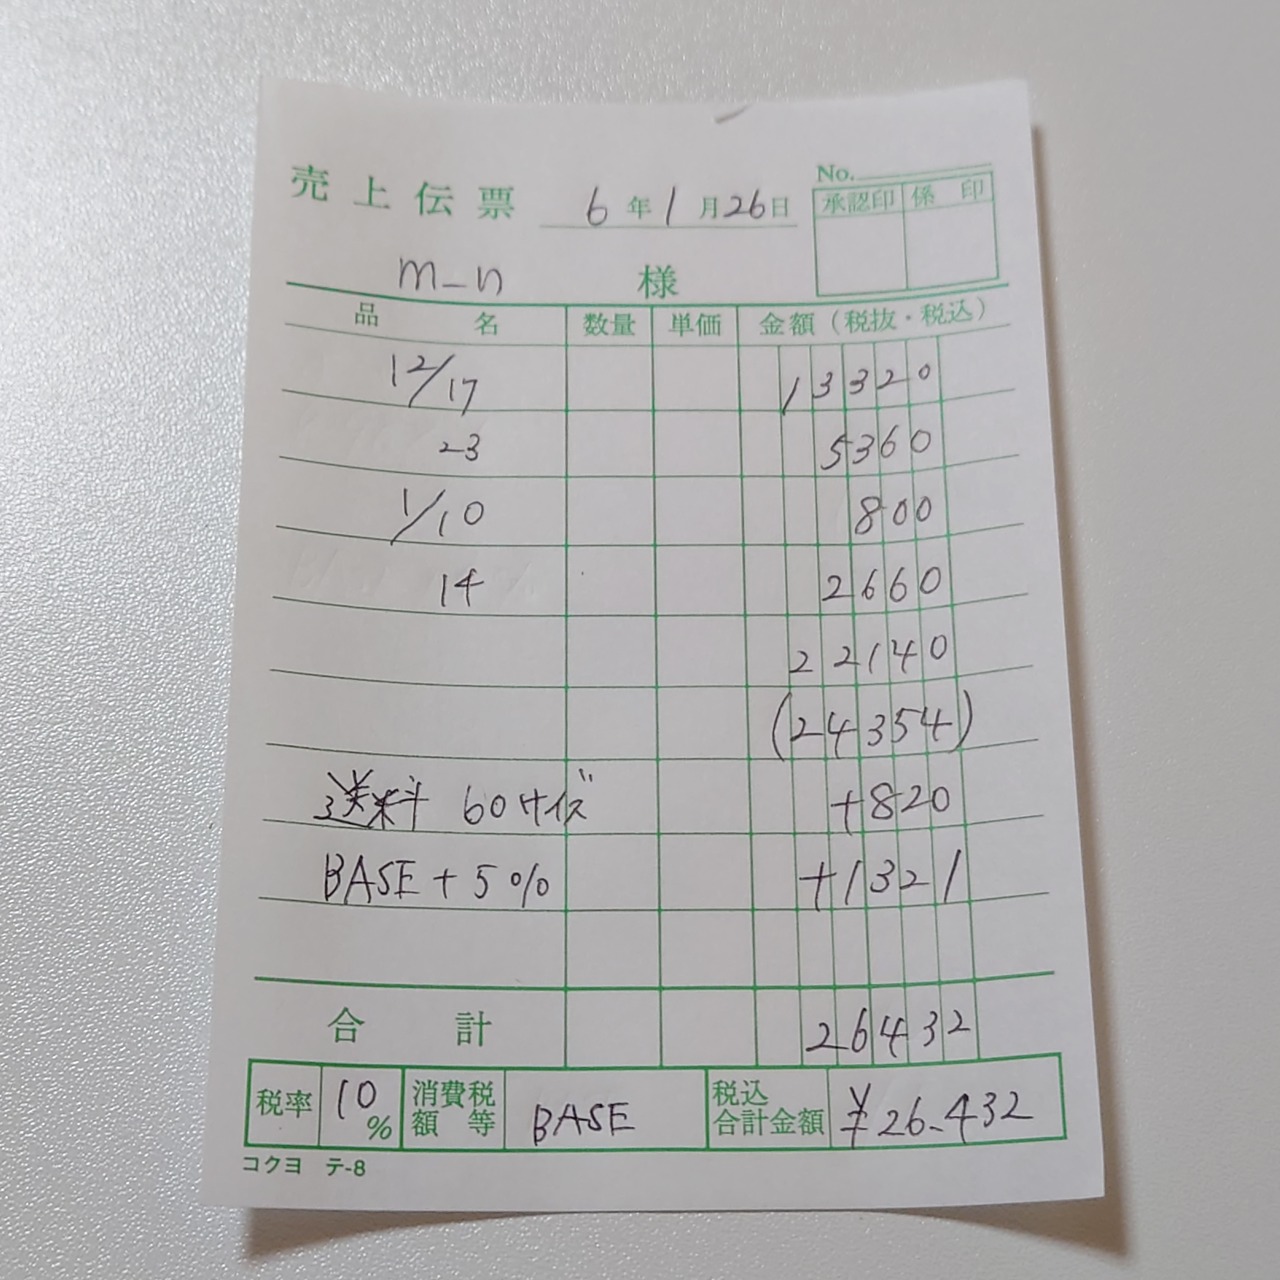 No.
売上伝票 6年1月26日
承認印 係印
m-n 様
品名 数量 単価 金額(税抜・税込)
12/17 13320
23 5360
1/10 800
14 2660
22140
(24354)
送料 60サイズ +820
BASE+5% +1321
合計 26432
税率 10% 消費税額等 BASE 税込合計金額 ¥26.432
コクヨ テ-8